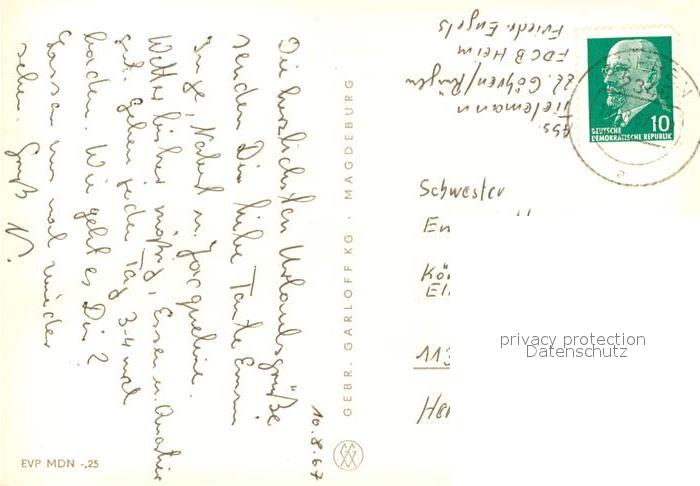 10.8.67
Die herzlichsten Urlaubsgrüße
senden Dir, liebe Tante Emmi
Inge, Nahut u. Jacqueline.
Wetter bisher mäßig, Essen u. Quartier
gut. Gehen jeden Tag 3-4 mal
baden. Wie geht es Dir?
Lassen uns mal wieder
sehen. Gruß N.
GEBR. GARLOFF KG · MAGDEBURG
EVP MDN -,25
Abs.
Tielemann
z.Z. Göhren/Rügen
FDGB Heim
Friedr. Engels
10
DEUTSCHE
DEMOKRATISCHE REPUBLIK
Schwester
En
Kö
El
113
Her
privacy protection
Datenschutz